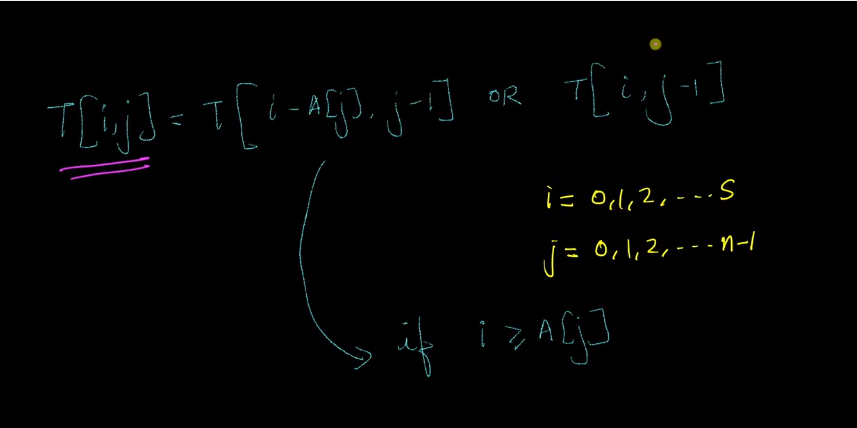 T[i,j] = T[i-A[j], j-1] OR T[i,j-1]
i = 0,1,2,----S
j = 0,1,2,----n-1
if i ≥ A[j]